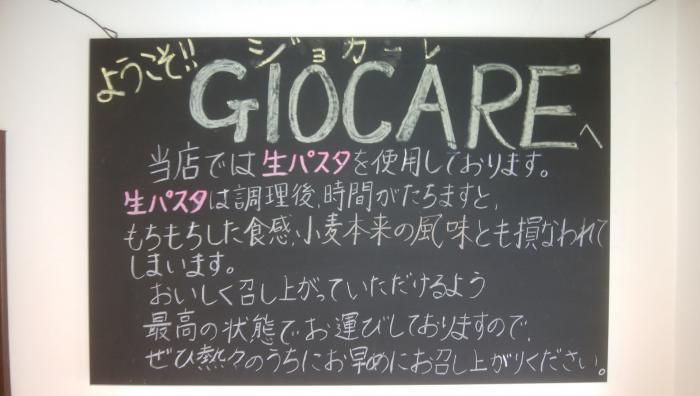 ようこそ!!
ジョカーレ
GIOCAREへ
当店では生パスタを使用しております。
生パスタは調理後、時間がたちますと、
もちもちした食感、小麦本来の風味とも損なわれて
しまいます。
おいしく召し上がっていただけるよう
最高の状態でお運びしておりますので、
ぜひ熱々のうちにお早めにお召し上がりください。